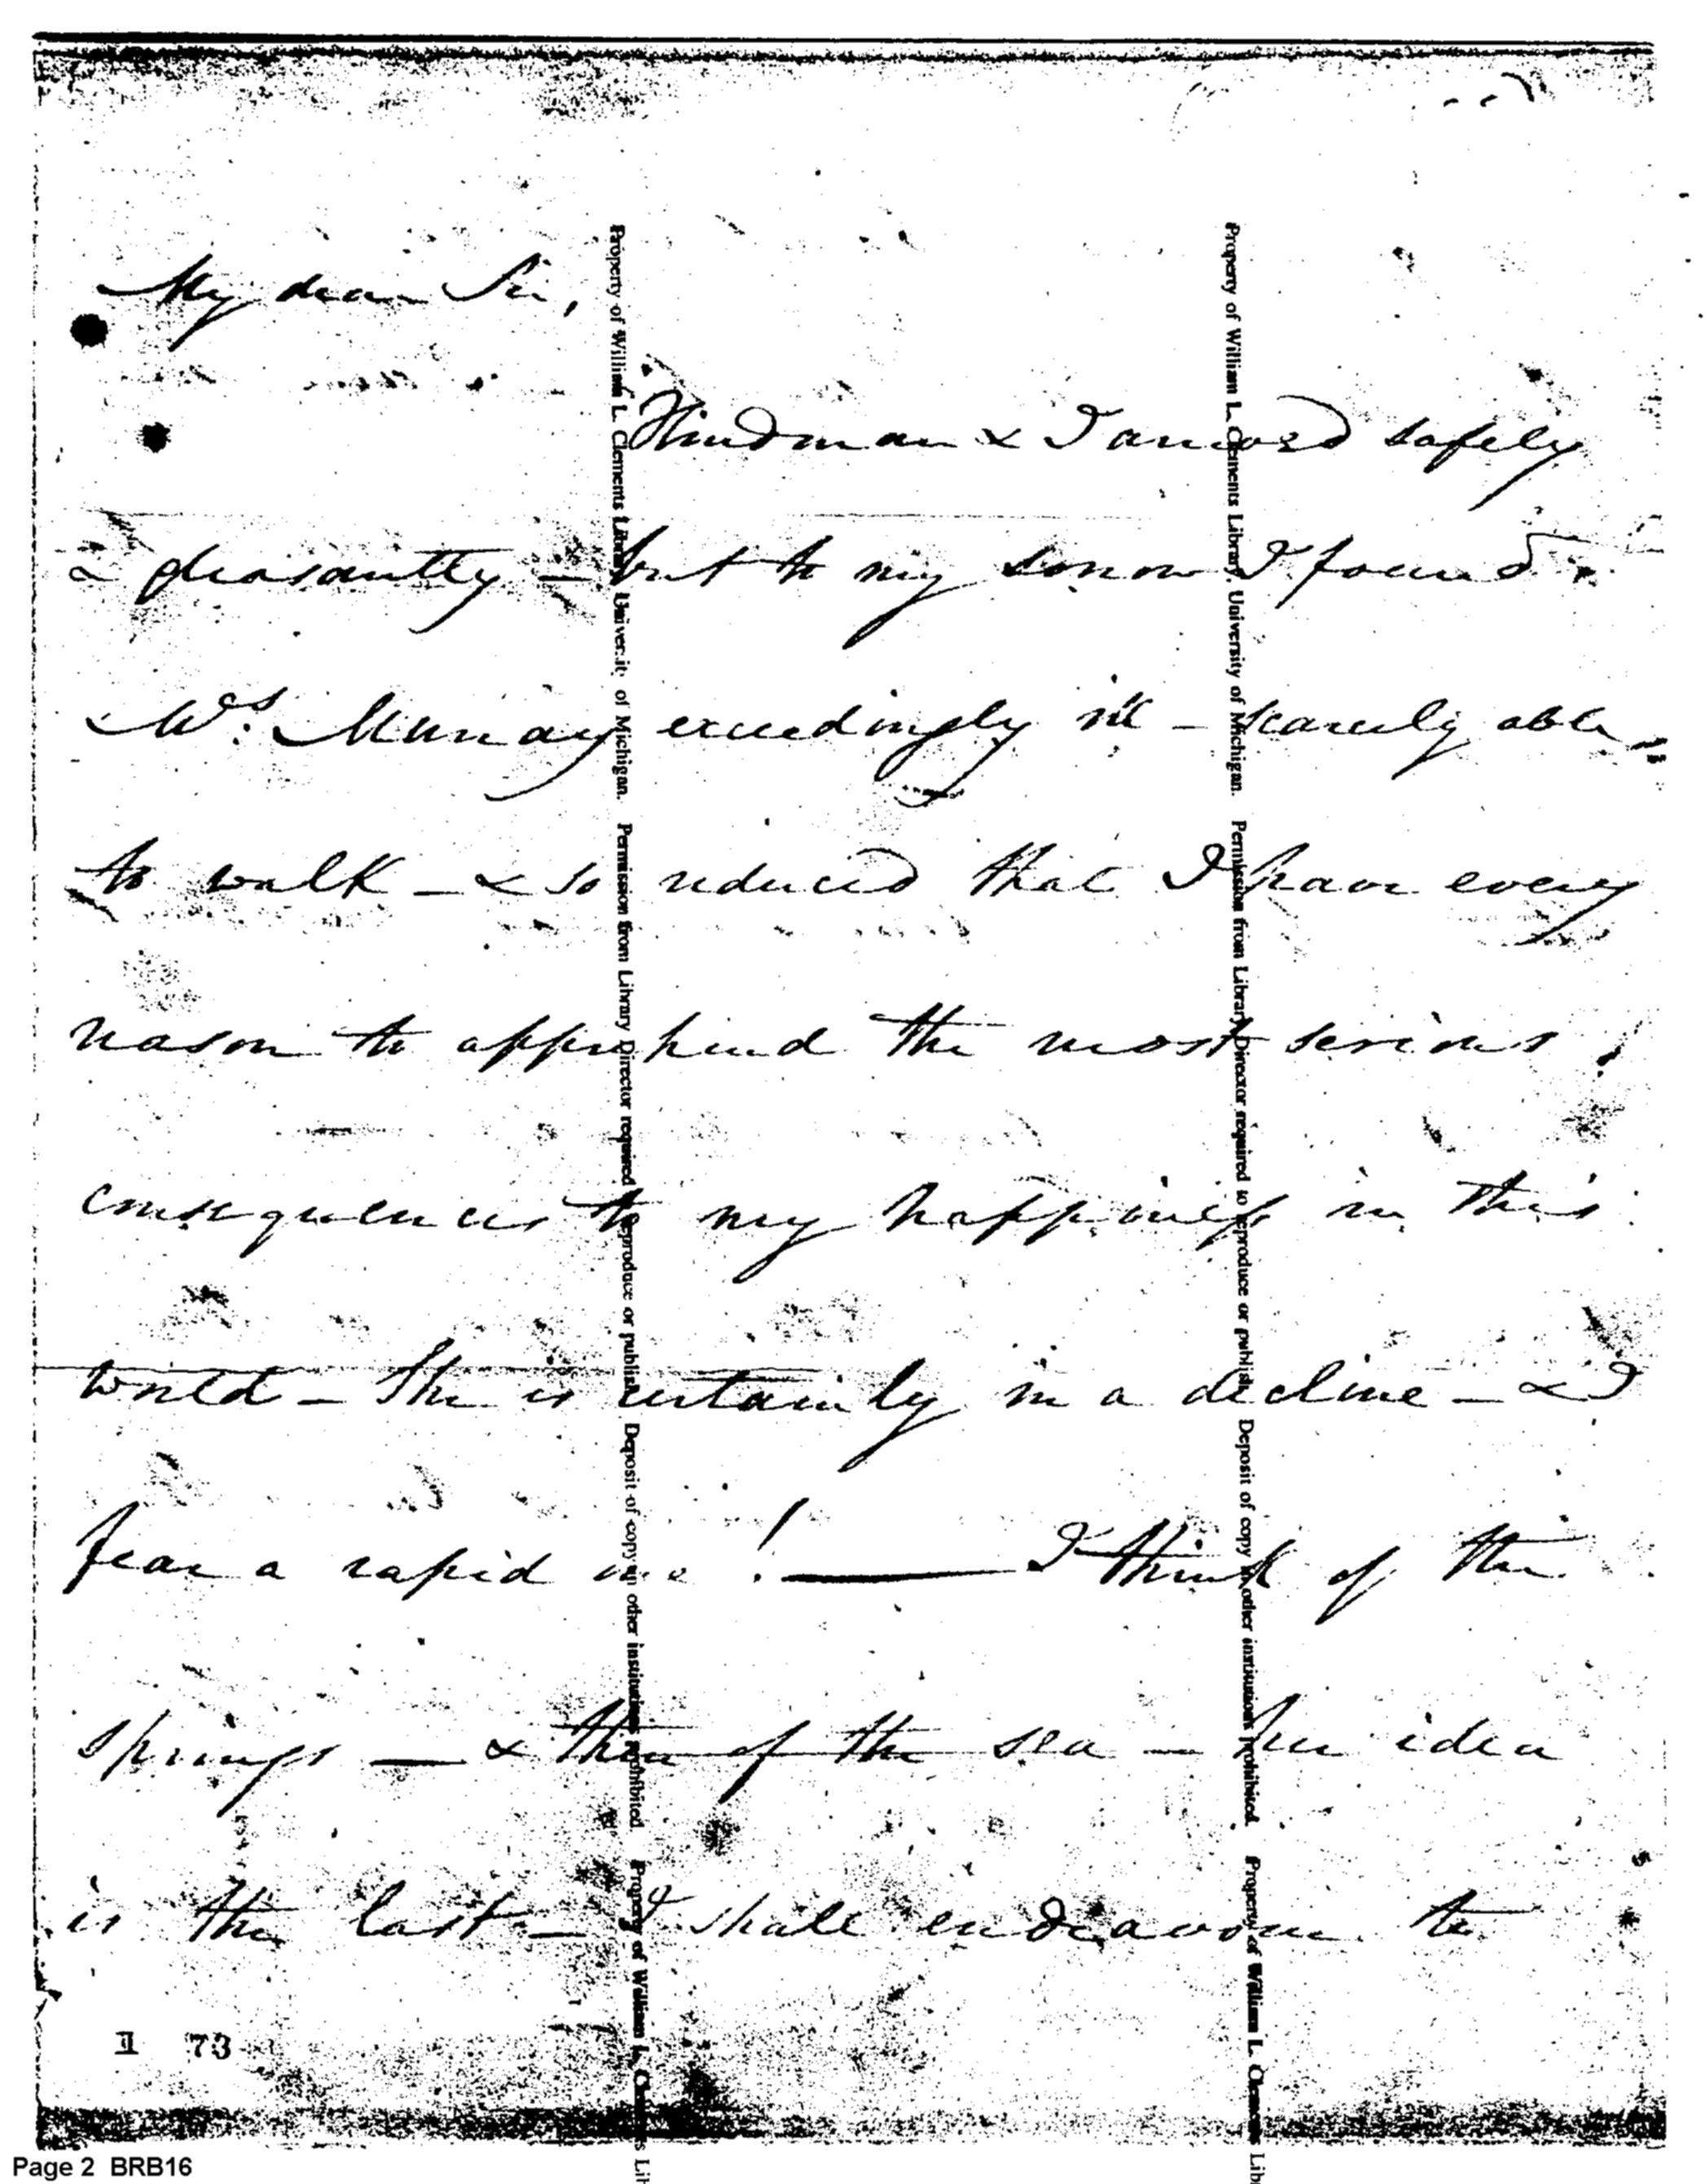 My dear Sir,
Hindman & I arrived safely
& pleasantly – but to my sorrow I found
Mrs. Murray exceedingly ill – scarcely able
to walk – & so reduced that I have every
reason to apprehend the most serious
consequences to my happiness in this
world – She is certainly in a decline – & I
fear a rapid one! — I think of the
springs — & then of the sea – her idea
is the last – I shall endeavour to
I 73
Property of William L. Clements Library, University of Michigan. Permission from Library Director required to reproduce or publish. Deposit of copy in other institutions prohibited. Property of William L. Clements Lib
Property of William L. Clements Library, University of Michigan. Permission from Library Director required to reproduce or publish. Deposit of copy in other institutions prohibited. Property of William L. Clements Lib
Page 2 BRB16